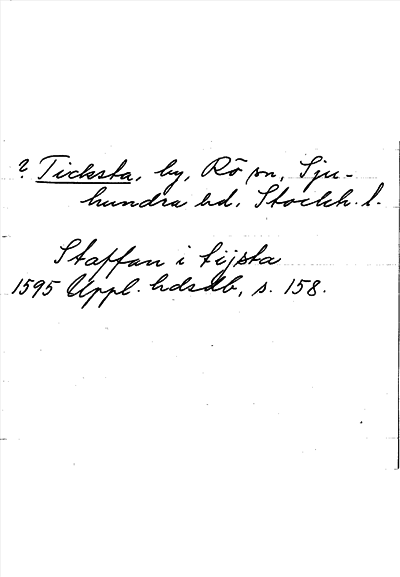 ? Ticksta, by, Rö sn, Sju-
hundra hd, Stockh. l.
Staffan i tijsta
1595 Uppl. hdsdb, s. 158.